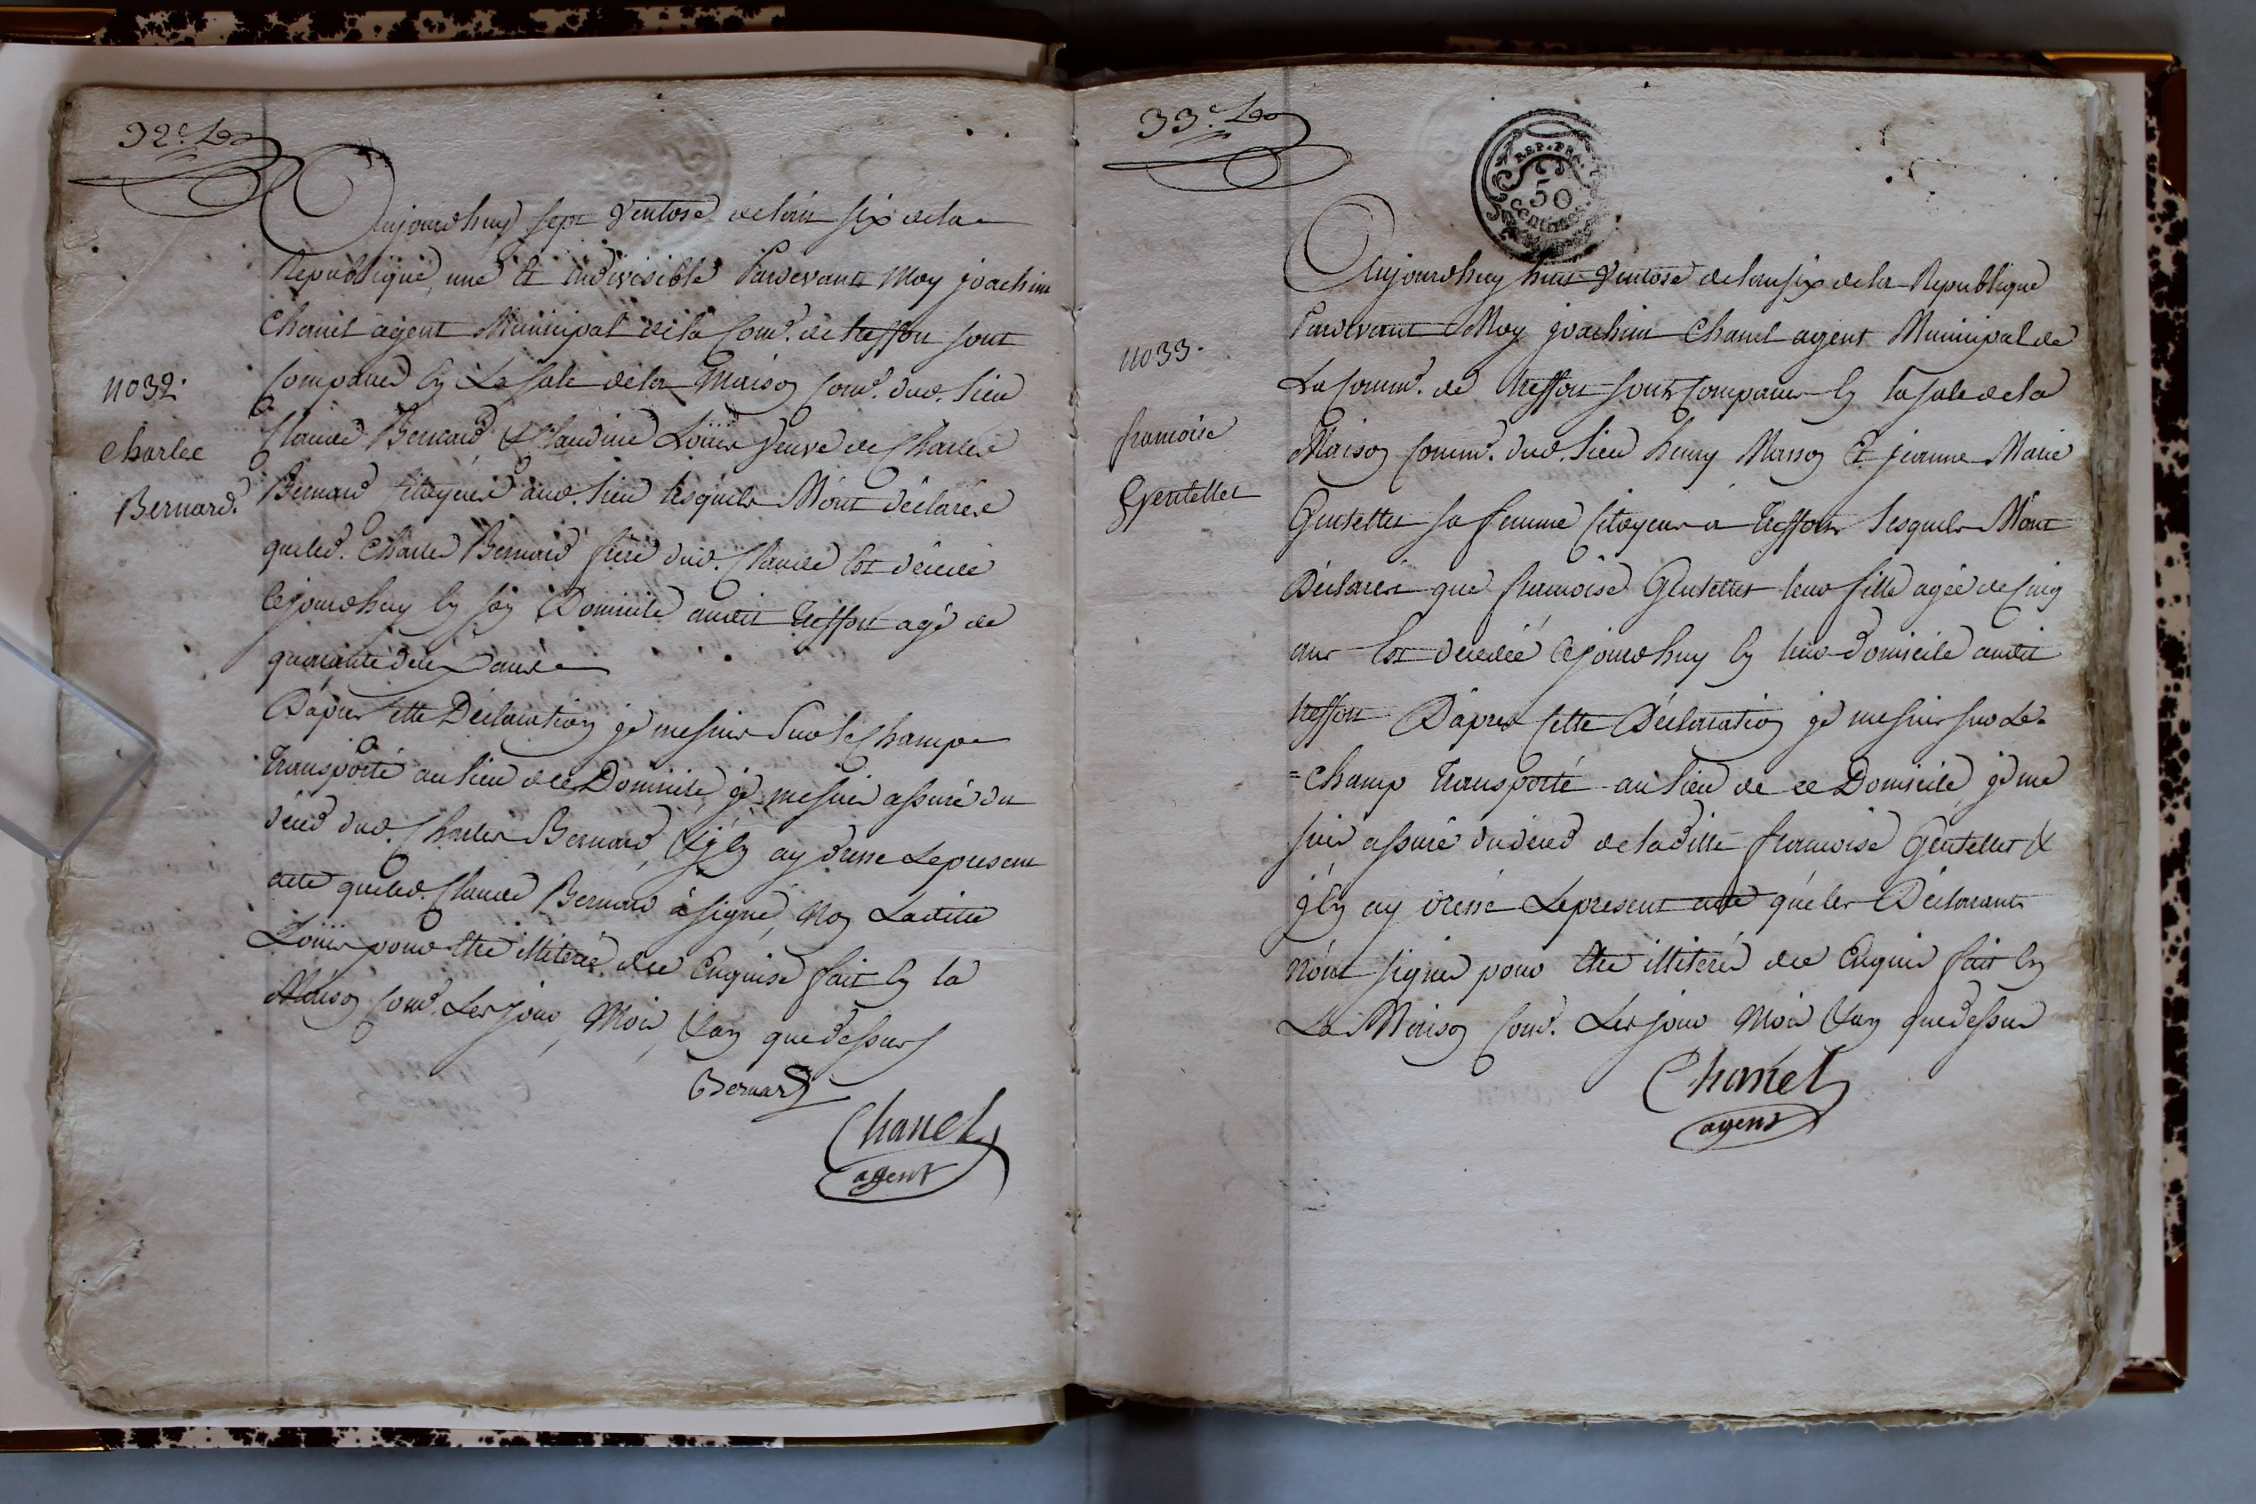 32e. Lo
Aujourdhuy sept Ventose de l'an six de la
Republique, une et indivisible Pardevant Moy joachim
Chanel agent Municipal de la Com.e de treffort sont
Comparus En La sale de la Maison Com.e dud. Lieu
no 32.
Claude Bernard, & Claudine Louis veuve de Charles
Charles
Bernard Citoyens aud. Lieu lesquels M'ont déclarés
Bernard.
que led. Charles Bernard frere dud. Claude Est décédé
Cejourdhuy En son Domicile audit treffort agé de
quarante deux ans
D'après cette Déclaration je me suis Sur le Champ
transporté au lieu de ce Domicile, je me suis assuré du
déced dud. Charles Bernard, & j'En ay dressé Le present
acte que led. Claude Bernard à signé, Non Laditte
Louis pour Etre illiterée de ce Enquise fait En la
Maison Com.e Les jour, Mois, & an que dessus
Bernard
Chanel
agent
33e. Lo
REP. FRA.
50
Centimes
Aujourdhuy huit Ventose de l'an six de la Republique
Pardevant Moy joachim Chanel agent Municipal de
La Comm.e de treffort sont Comparus En la sale de la
no 33.
Maison Comm.e dud. Lieu henry Masson Et jeanne Marie
francoise
Gentellet
Gentellet sa femme Citoyens à treffort lesquels M'ont
Déclarés que francoise Gentellet leur fille agée de Cinq
ans Est décédée Cejourdhuy En leur domicile audit
treffort D'après Cette Déclaration je me suis sur Le
= champ transporté au lieu de ce Domicile, je me
suis assuré du déced de laditte francoise Gentellet &
j'En ay dressé Le present acte que les Déclarants
n'ont signés pour Etre illiterés de ce Enquis fait En
La Maison Com.e Les jour Mois & an que dessus
Chanel
agent